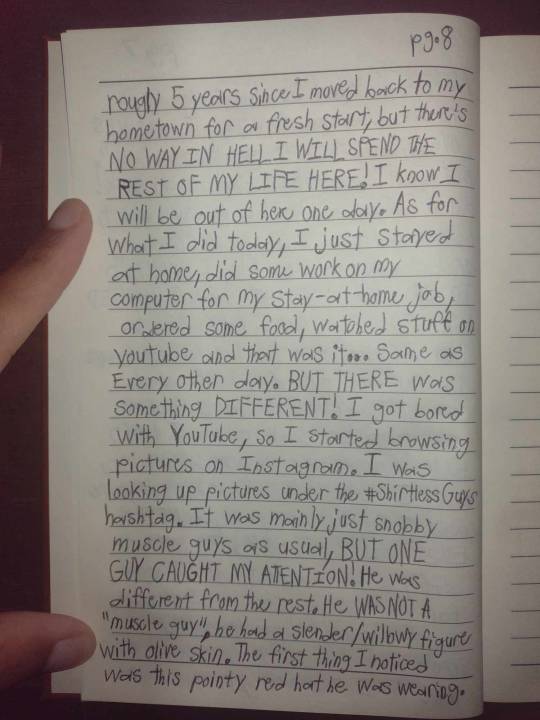 pg.8
roughly 5 years since I moved back to my
hometown for a fresh start, but there's
NO WAY IN HELL I WILL SPEND THE
REST OF MY LIFE HERE! I know I
will be out of here one day. As for
what I did today, I just stayed
at home, did some work on my
computer for my stay-at-home job,
ordered some food, watched stuff on
youtube and that was it... Same as
Every other day. BUT THERE WAS
something DIFFERENT! I got bored
with YouTube, so I started browsing
pictures on Instagram. I was
looking up pictures under the #ShirtlessGuys
hashtag. It was mainly just snobby
muscle guys as usual, BUT ONE
GUY CAUGHT MY ATTENTION! He was
different from the rest. He WAS NOT A
"muscle guy", he had a slender/willowy figure
with olive skin. The first thing I noticed
was this pointy red hat he was wearing.